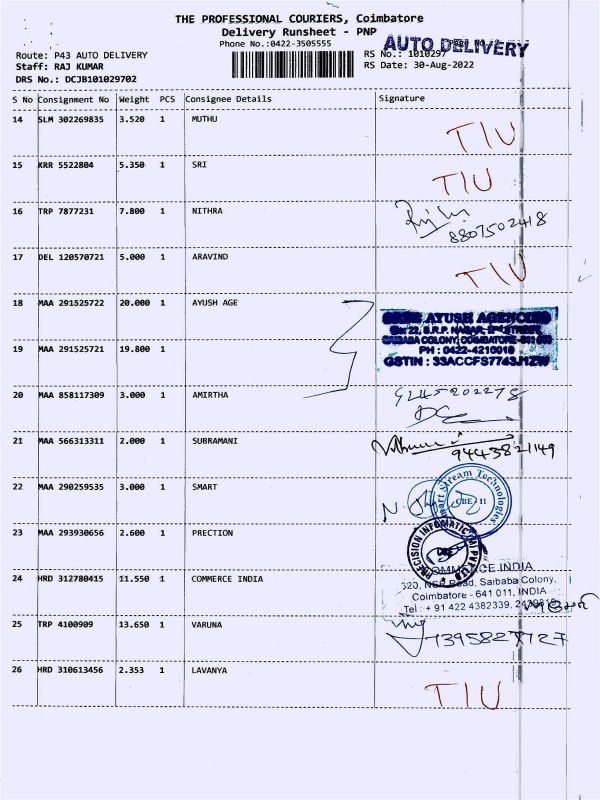 THE PROFESSIONAL COURIERS, Coimbatore
Delivery Runsheet - PNP
Phone No.:0422-3505555
AUTO DELIVERY
Route: P43 AUTO DELIVERY
RS No.: 1010297
Staff: RAJ KUMAR
RS Date: 30-Aug-2022
DRS No.: DCJB101029702
S No Consignment No Weight PCS Consignee Details Signature
14 SLM 302269835 3.520 1 MUTHU TIU
15 KRR 5522804 5.350 1 SRI TIU
16 TRP 7877231 7.800 1 NITHRA
8807502418
17 DEL 120570721 5.000 1 ARAVIND TIU
18 MAA 291525722 20.000 1 AYUSH AGE
AYUSH AGENCIES
S.R.P. NAGAR,
COLONY, COIMBATORE
19 MAA 291525721 19.800 1
PH : 0422-4210018
GSTIN : 33ACCFS7743J1ZW
20 MAA 858117309 3.000 1 AMIRTHA
21 MAA 566313311 2.000 1 SUBRAMANI
9443821149
22 MAA 290259535 3.000 1 SMART
Smart Stream Technologies
CBE 11
23 MAA 293930656 2.600 1 PRECTION
PRECISION INFOMATIC PVT LTD
24 HRD 312780415 11.550 1 COMMERCE INDIA
COMMERCE INDIA
320, NSR Road, Saibaba Colony,
Coimbatore - 641 011, INDIA
Tel : + 91 422 4382339,
25 TRP 4100909 13.650 1 VARUNA
7395827727
26 HRD 310613456 2.353 1 LAVANYA TIU